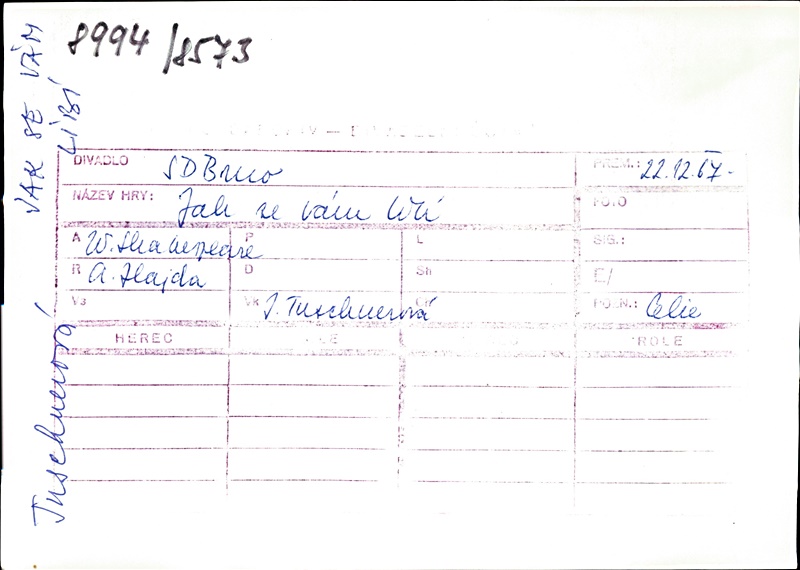 8994/8573
JAK SE VÁM LÍBÍ
Tuschnerová
DIVADLO SD Brno PREM.: 22.12.67.
NÁZEV HRY: Jak se vám líbí FOTO
A W. Shakespeare P L SIG.:
R A. Hajda D Sh E/
Vs Vk J. Tuschnerová Ch POZN.: Celie
HEREC ROLE